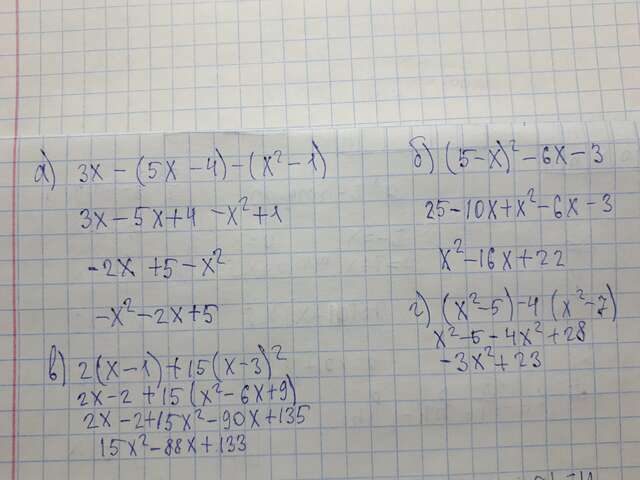 а) 3x - (5x - 4) - (x² - 1)
3x - 5x + 4 - x² + 1
-2x + 5 - x²
-x² - 2x + 5
б) (5 - x)² - 6x - 3
25 - 10x + x² - 6x - 3
x² - 16x + 22
в) 2(x - 1) + 15(x - 3)²
2x - 2 + 15(x² - 6x + 9)
2x - 2 + 15x² - 90x + 135
15x² - 88x + 133
г) (x² - 5) - 4(x² - 7)
x² - 5 - 4x² + 28
-3x² + 23